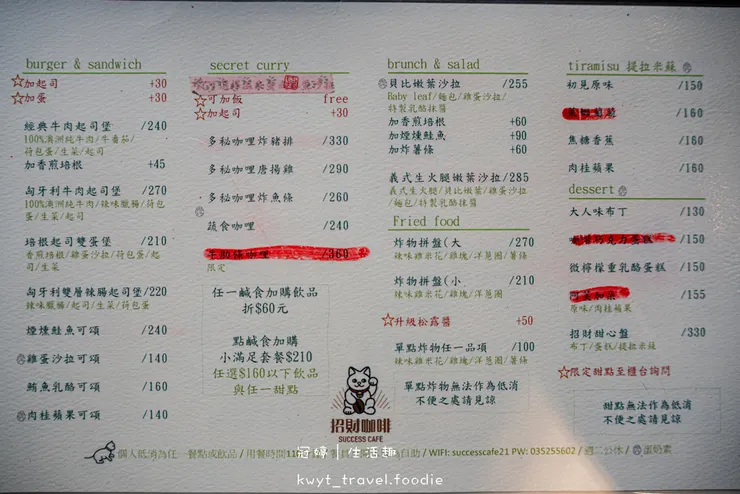 burger & sandwich
☆加起司 +30
☆加蛋 +30
經典牛肉起司堡 /240
100%澳洲純牛肉/牛番茄/
荷包蛋/生菜/起司
加香煎培根 +45
匈牙利牛肉起司堡 /270
100%澳洲純牛肉/辣味臘腸/荷包
蛋/生菜/起司
培根起司雙蛋堡 /210
香煎培根/雞蛋沙拉/荷包蛋/起
司/生菜
匈牙利雙層辣腸起司堡/220
辣味臘腸/起司/生菜/荷包蛋
煙燻鮭魚可頌 /240
雞蛋沙拉可頌 /140
鮪魚乳酪可頌 /160
肉桂蘋果可頌 /140
secret curry
☆可加飯 free
☆加起司 +30
多秘咖哩炸豬排 /330
多秘咖哩唐揚雞 /290
多秘咖哩炸魚條 /260
蔬食咖哩 /240
牛肋條咖哩 /360
限定
任一鹹食加購飲品
折$60元
點鹹食加購
小滿足套餐$210
任選$160以下飲品
與任一甜點
brunch & salad
貝比嫩葉沙拉 /255
Baby leaf/麵包/雞蛋沙拉/
特製乳酪抹醬
加香煎培根 +60
加煙燻鮭魚 +90
加炸薯條 +60
義式生火腿嫩葉沙拉/285
義式生火腿/貝比嫩葉/雞蛋沙拉
/麵包/特製乳酪抹醬
Fried food
炸物拼盤(大 /270
辣味雞米花/雞塊/洋蔥圈/薯條
炸物拼盤(小 /210
辣味雞米花/雞塊/洋蔥圈
☆升級松露醬 +50
單點炸物任一品項 /100
辣味雞米花/雞塊/洋蔥圈/薯條
單點炸物無法作為低消
不便之處請見諒
tiramisu 提拉米蘇
初見原味 /150
/160
焦糖香蕉 /160
肉桂蘋果 /160
dessert
大人味布丁 /130
/150
微檸檬重乳酪蛋糕 /150
/155
原味/肉桂蘋果
招財甜心盤 /330
布丁/蛋糕/提拉米蘇
☆限定甜點至櫃台詢問
甜點無法作為低消
不便之處請見諒
招財咖啡
SUCCESS CAFE
個人低消為任一餐點或飲品/用餐時間 為自助/WIFI: successcafe21 PW: 035255602/週二公休/蛋奶素
冠婷|生活趣
kwyt_travel.foodie